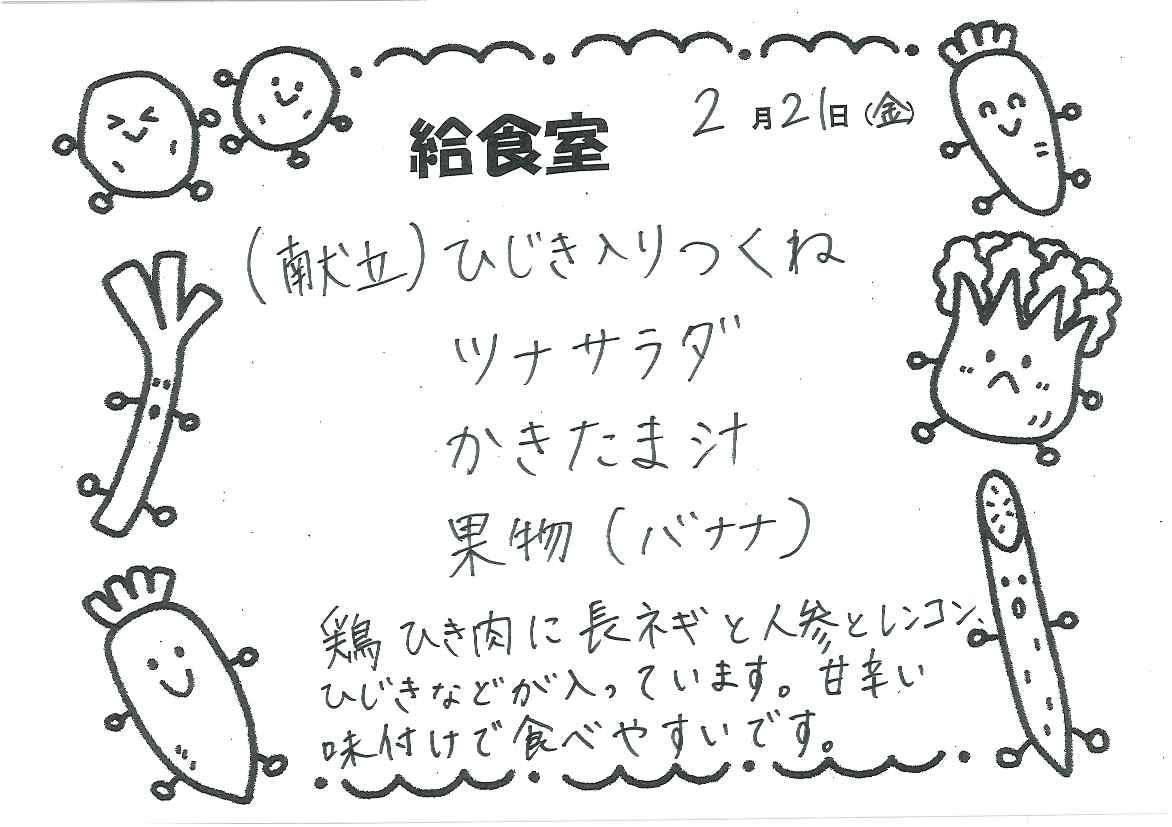 給食室 2月21日(金)
(献立)ひじき入りつくね
ツナサラダ
かきたま汁
果物(バナナ)
鶏ひき肉に長ネギと人参とレンコン、
ひじきなどが入っています。甘辛い
味付けで食べやすいです。